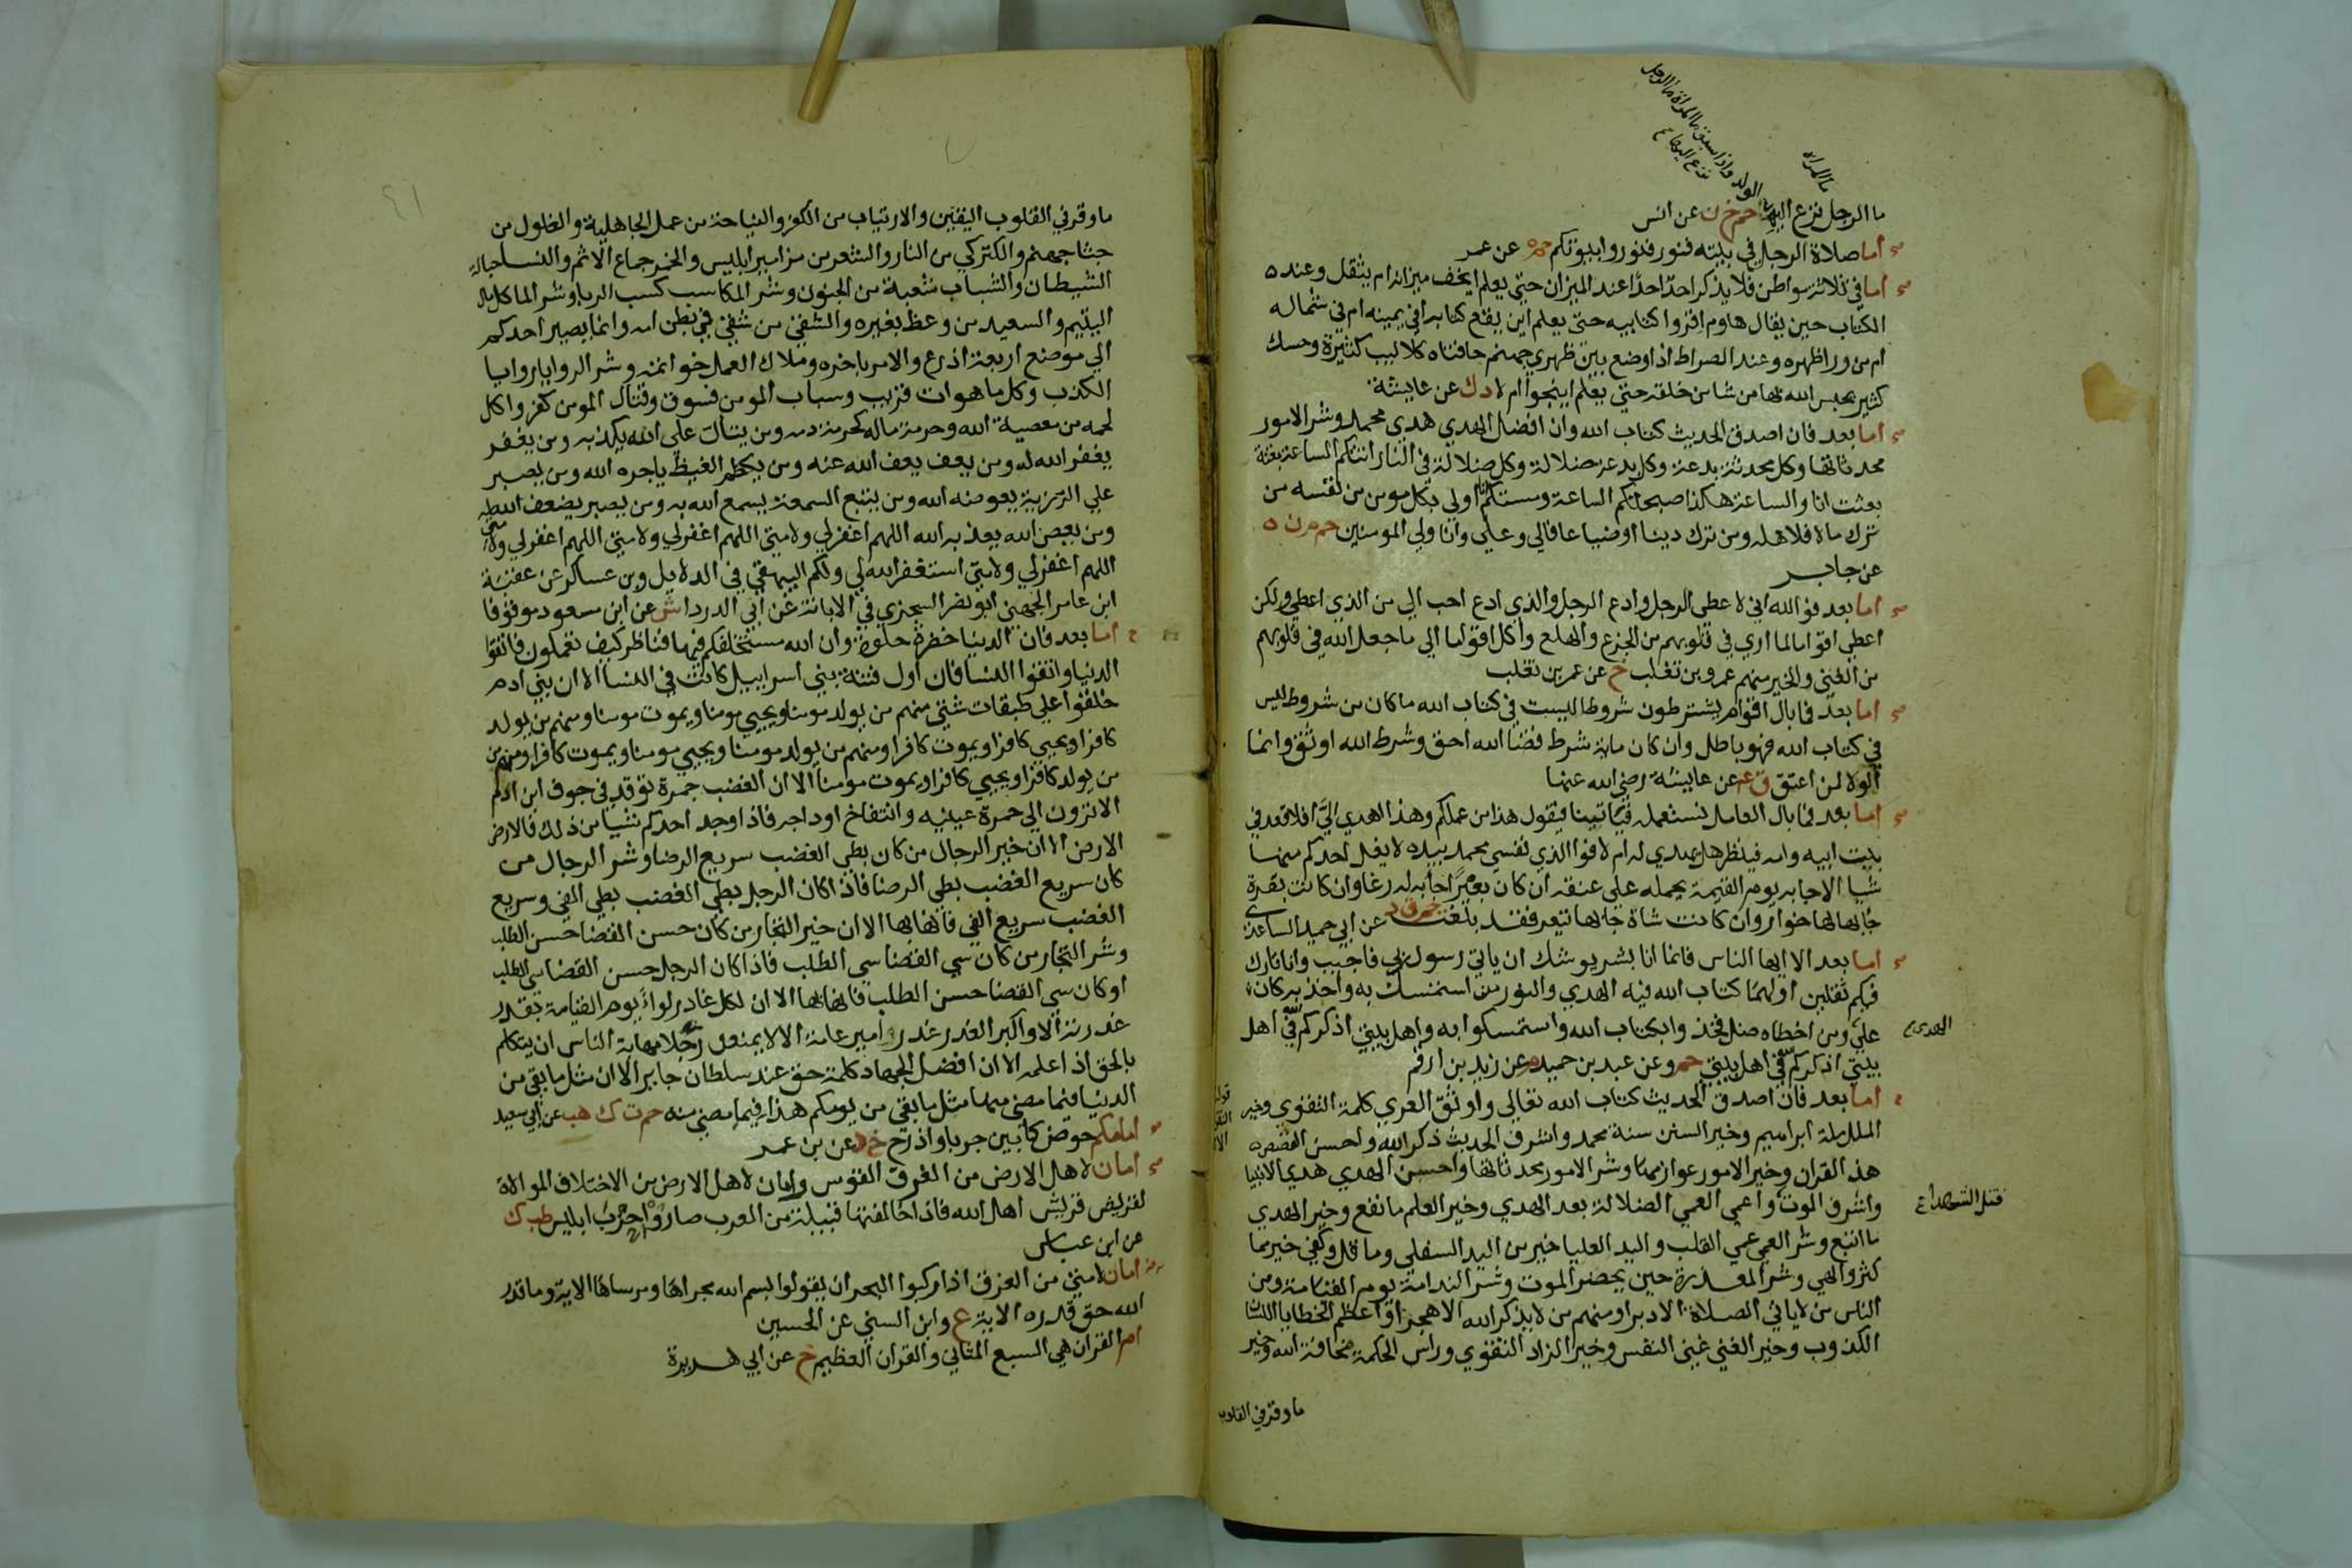 ما المراة
الولد واذا سبق ما المراة ما الرجل
نزع اليها ع
ما الرجل نزع اليها حم خ ن عن انس
اما صلاة الرجل في بيته فنور فنوروا بيوتكم حم ه عن عمر
اما في ثلاثة مواطن فلا يذكر احد احدا عند الميزان حتى يعلم ايخف ميزانه ام يثقل وعند
الكتاب حين يقال هاوم اقروا كتابيه حتى يعلم اين يقع كتابه افي يمينه ام في شماله
ام من ورا ظهره وعند الصراط اذا وضع بين ظهري جهنم حافتاه كلاليب كثيرة وحسك
كثير يحبس الله بها من شا من خلقه حتى يعلم اينجوا ام لا د ك عن عايشة
اما بعد فان اصدق الحديث كتاب الله وان افضل الهدي هدي محمد وشر الامور
محدثاتها وكل محدثة بدعة وكل بدعة ضلالة وكل ضلالة في النار اتتكم الساعة بغتة
بعثت انا والساعة هكذا صبحتكم الساعة ومستكم انا اولي بكل مومن من نفسه من
ترك مالا فلاهله ومن ترك دينا او ضياعا فالي وعلي وانا ولي المومنين حم م ن ه
عن جابر
اما بعد فوالله اني لاعطي الرجل وادع الرجل والذي ادع احب الي من الذي اعطي ولكن
اعطي اقواما لما اري في قلوبهم من الجزع والهلع واكل اقواما الي ما جعل الله في قلوبهم
من الغني والخير منهم عمرو بن تغلب خ عن عمر بن تغلب
اما بعد فما بال اقوام يشترطون شروطا ليست في كتاب الله ما كان من شروط ليس
في كتاب الله فهو باطل وان كان مائة شرط قضا الله احق وشرط الله اوثق وانما
الولا لمن اعتق ق عم عن عايشة رضي الله عنها
اما بعد فما بال العامل نستعمله فياتينا فيقول هذا من عملكم وهذا اهدي الي افلا قعد في
بيت ابيه وامه فينظر هل يهدي له ام لا فوالذي نفسي محمد بيده لا يغل احدكم منها
شيا الا جا به يوم القيمة يحمله علي عنقه ان كان بعيرا جا به له رغا وان كانت بقرة
جا بها لها خوار وان كانت شاة جا بها تيعر فقد بلغت حم ق د عن ابي حميد الساعدي
اما بعد الا ايها الناس فانما انا بشر يوشك ان ياتي رسول ربي فاجيب وانا تارك
فيكم ثقلين اولهما كتاب الله فيه الهدي والنور من استمسك به واخذ به كان
الهدي ع
علي ومن اخطاه ضل فخذوا بكتاب الله واستمسكوا به واهل بيتي اذكركم الله في اهل
بيتي اذكركم الله في اهل بيتي حم وعن عبد بن حميد م عن زيد بن ارقم
اما بعد فان اصدق الحديث كتاب الله تعالي واوثق العري كلمة التقوي وخير
الملل ملة ابراهيم وخير السنن سنة محمد واشرف الحديث ذكر الله واحسن القصص
هذ القران وخير الامور عوازمها وشر الامور محدثاتها واحسن الهدي هدي الانبيا
قتل الشهدا ع
واشرف الموت واعمي العمي الضلالة بعد الهدي وخير العلم ما نفع وخير الهدي
ما اتبع وشر العمي عمي القلب واليد العليا خير من اليد السفلي وما قل وكفي خير مما
كثر والهي وشر المعذرة حين يحضر الموت وشر الندامة يوم القيامة ومن
الناس من لا ياتي الصلاة الا دبرا ومنهم من لا يذكر الله الا هجرا واعظم الخطايا اللسان
الكذوب وخير الغني غني النفس وخير الزاد التقوي وراس الحكمة مخافة الله وخير
ما وقر في القلوب
ما وقر في القلوب اليقين والارتياب من الكفر والنياحة من عمل الجاهلية والغلول من
جثا جهنم والكنز كي من النار والشعر من مزامير ابليس والخمر جماع الاثم والنسا حبالة
الشيطان والشباب شعبة من الجنون وشر المكاسب كسب الربا وشر الماكل مال
اليتيم والسعيد من وعظ بغيره والشقي من شقي في بطن امه وانما يصير احدكم
الي موضع اربعة اذرع والامر باخره وملاك العمل خواتمه وشر الروايا روايا
الكذب وكل ما هو ات قريب وسباب المومن فسوق وقتال المومن كفر واكل
لحمه من معصية الله وحرمة ماله كحرمة دمه ومن يتال على الله يكذبه ومن يغفر
يغفر الله له ومن يعف يعف الله عنه ومن يكظم الغيظ ياجره الله ومن يصبر
علي الرزية يعوضه الله ومن يتبع السمعة يسمع الله به ومن يصبر يضعف الله له
ومن يعص الله يعذبه الله اللهم اغفر لي ولامتي اللهم اغفر لي ولامتي اللهم اغفر لي ولامتي
اللهم اغفر لي ولامتي استغفر الله لي ولكم البيهقي في الدلايل وبن عساكر عن عقبة
ابن عامر الجهني ابو نصر السجزي في الابانة عن ابي الدردا ش عن ابن مسعود موقوفا
اما بعد فان الدنيا خضرة حلوة وان الله مستخلفكم فيها فناظر كيف تعملون فاتقوا
الدنيا واتقوا النسا فان اول فتنة بني اسراييل كانت في النسا الا ان بني ادم
خلقوا علي طبقات شتي منهم من يولد مومنا ويحيي مومنا ويموت مومنا ومنهم من يولد
كافرا ويحيي كافرا ويموت كافرا ومنهم من يولد مومنا ويحيي مومنا ويموت كافرا ومنهم من
من يولد كافرا ويحيي كافرا ويموت مومنا الا ان الغضب جمرة توقد في جوف ابن ادم
الا ترون الي حمرة عينيه وانتفاخ اوداجه فاذا وجد احدكم شيا من ذلك فالارض
الارض الا ان خير الرجال من كان بطي الغضب سريع الرضا وشر الرجال من
كان سريع الغضب بطي الرضا فاذا كان الرجل بطي الغضب بطي الفي وسريع
الغضب سريع الفي فانها بها الا ان خير التجار من كان حسن القضا حسن الطلب
وشر التجار من كان سي القضا سي الطلب فاذا كان الرجل حسن القضا سي الطلب
او كان سي القضا حسن الطلب فانها بها الا ان لكل غادر لواء يوم القيامة بقدر
غدرته الا واكبر الغدر غدر امير عامة الا لا يمنعن رجلا مهابة الناس ان يتكلم
بالحق اذا علمه الا ان افضل الجهاد كلمة حق عند سلطان جاير الا ان مثل ما بقي من
الدنيا فيما مضي منها مثل ما بقي من يومكم هذا فيما مضي منه حم ت ك هب عن ابي سعيد
امامكم حوض كما بين جربا واذرح خ د عن بن عمر
امان لاهل الارض من الغرق القوس وامان لاهل الارض من الاختلاف الموالاة
لقريش قريش اهل الله فاذا خالفتها قبيلة من العرب صاروا حزب ابليس طب ك
عن ابن عباس
امان لامتي من الغرق اذا ركبوا البحر ان يقولوا بسم الله مجراها ومرساها الاية وما قدروا
الله حق قدره الاية ع وابن السني عن الحسين
ام القران هي السبع المثاني والقران العظيم خ عن ابي هريرة